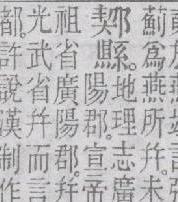 薊爲燕所幷。未
縣。地理志廣
陽郡。宣帝
祖省廣陽郡。幷
光武省幷而言
都。許說漢制作